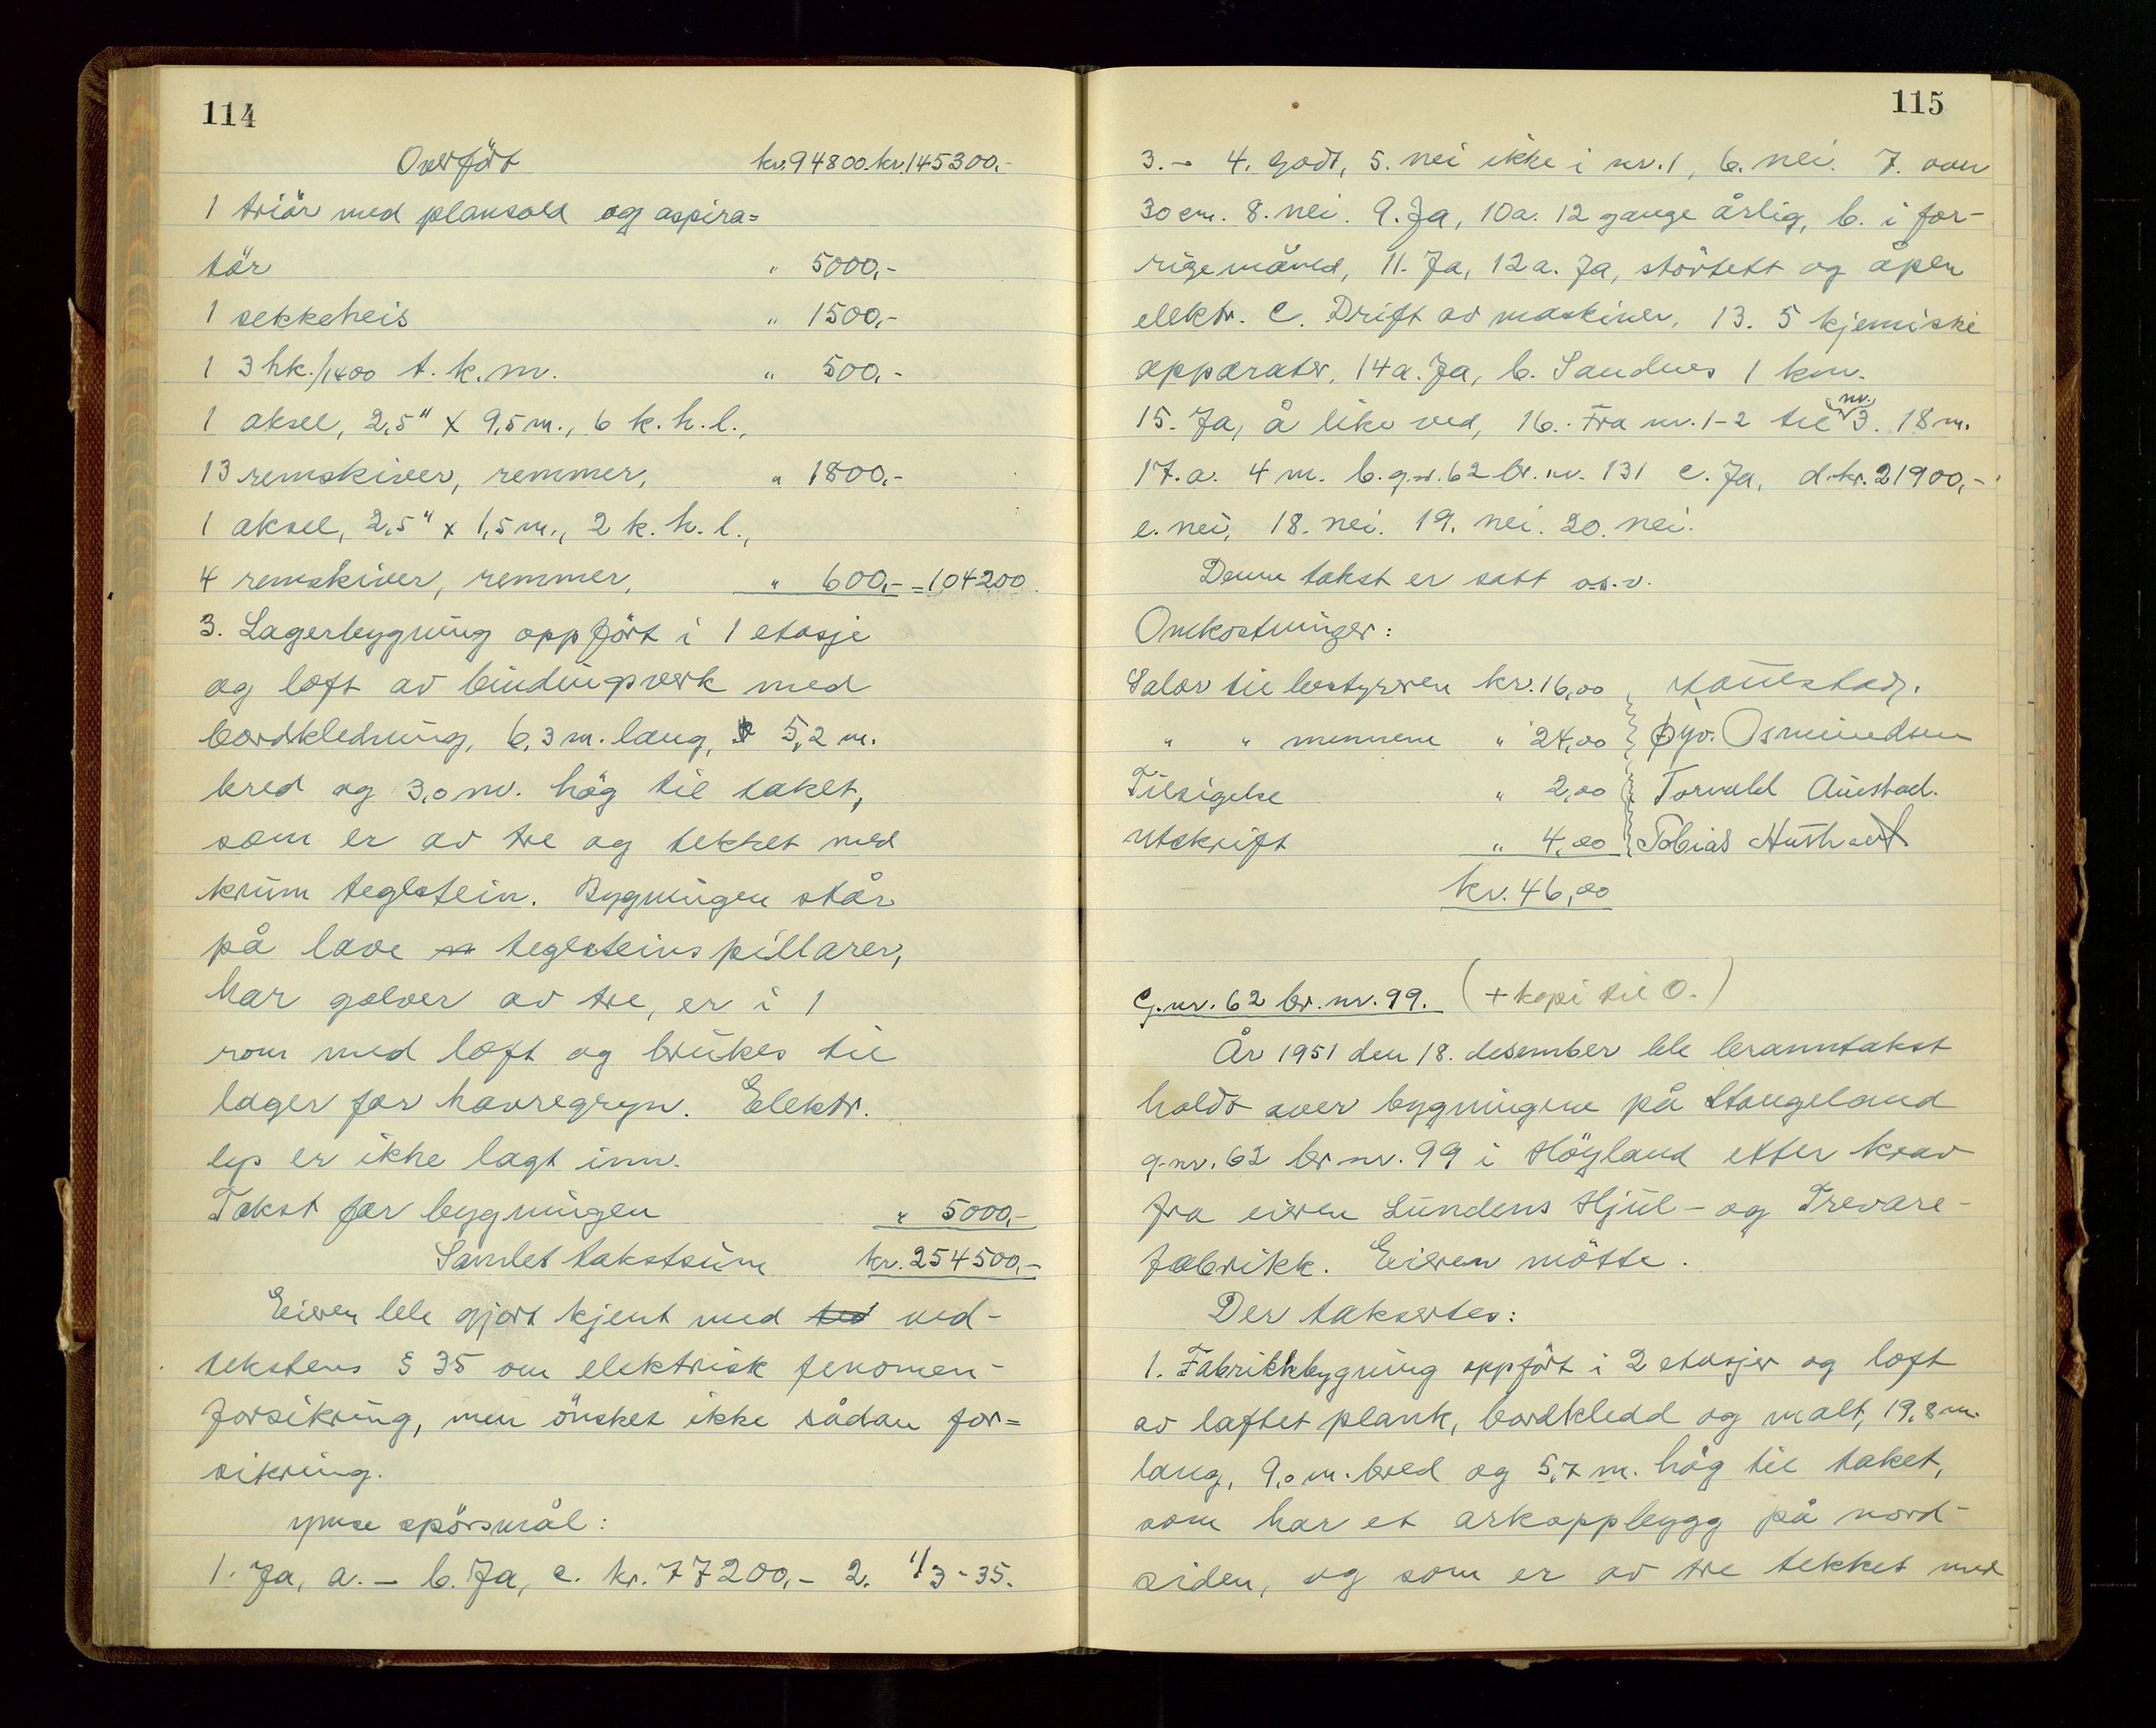 114
Overfört kr. 94800.- kr. 145300.-
1 triör med plansold og aspira=
tör " 5000,-
1 sekkeheis " 1500,-
1 3 hk./1400 t. k. m. " 500,-
1 aksel, 2,5" x 9,5 m., 6 k. h. l.,
13 remskiver, remmer, " 1800,-
1 aksel, 2,5" x 1,5 m., 2 k. h. l.,
4 remskiver, remmer, " 600,- = 104200
3. Lagerbygning oppfört i 1 etasje
og loft av bindingsverk med
bordkledning, 6,3 m. lang, 5,2 m.
bred og 3,0 m. hög til taket,
som er av tre og tekket med
krum teglstein. Bygningen står
på lave teglsteinspillarer,
har golver av tre, er i 1
rom med loft og brukes til
lager for havregryn. Elektr.
lys er ikke lagt inn.
Takst for bygningen " 5000,-
Samlet takstsum kr. 254500,-
Eieren ble gjort kjent med ved-
tektens § 35 om elektrisk fenomen-
forsikring, men önsket ikke sådan for=
sikring.
Ymse spörsmål:
1. Ja, a. - b. Ja, c. kr. 77200,- 2. 1/3-35.
115
3. - 4. godt, 5. nei ikke i nr. 1, 6. nei. 7. over
30 cm. 8. nei. 9. Ja, 10a. 12 gange årlig, b. i for-
rige måned, 11. Ja, 12a. Ja, störtett og åpen
elektr. c. Drift av maskiner, 13. 5 kjemiske
apparater, 14a. Ja, b. Sandnes 1 km.
15. Ja, å like ved, 16. Fra nr. 1-2 til nr. 3. 18 m.
17. a. 4 m. b. g.nr. 62 br. nr. 131 c. Ja, d. kr. 21900,-
e. nei, 18. nei. 19. nei. 20. nei.
Denne takst er satt o.s.v.
Omkostninger:
Salær til bestyreren kr. 16,00
" " mennene " 24,00 Öyv. Osmundsen
Tilsigelse " 2,00 Torvald Austad.
Utskrift " 4,00 Tobias
kr. 46,00
G.nr. 62 br. nr. 99. (+ kopi til O.)
År 1951 den 18. desember ble branntakst
holdt over bygningene på Stangeland
g.nr. 62 br. nr. 99 i Höyland etter krav
fra eieren Lundens Hjul- og Trevare-
fabrikk. Eieren mötte.
Der taksertes:
1. Fabrikkbygning oppfört i 2 etasjer og loft
av laftet plank, bordkledd og malt, 19,8 m.
lang, 9,0 m. bred og 5,7 m. hög til taket,
som har et arkoppbygg på nord-
siden, og som er av tre tekket med